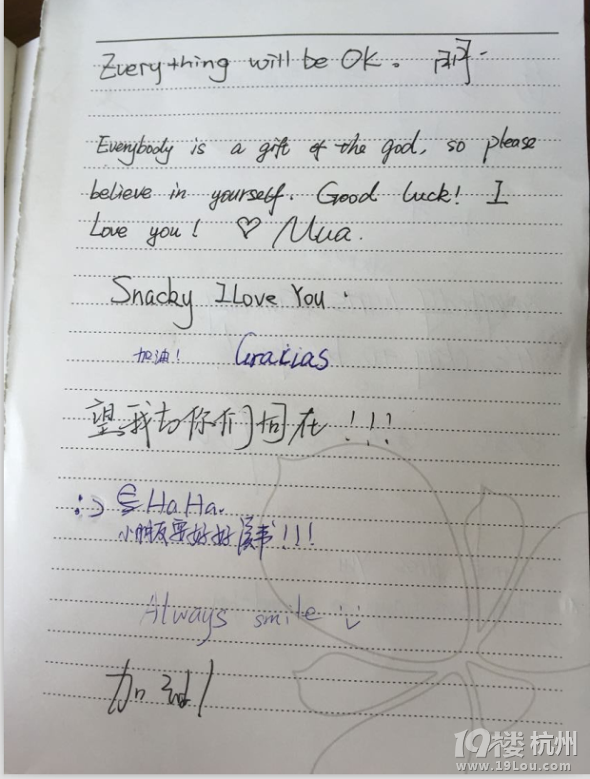 Everything will be OK。
Everybody is a gift of the god, so please
believe in yourself. Good luck! I
Love you! ♡ Mua.
Snacky I Love You.
加油! Gracias
望我与你们同在!!!
:) HaHa.
小朋友要好好读书!!!
Always smile
加油!
19楼 杭州
www.19Lou.com